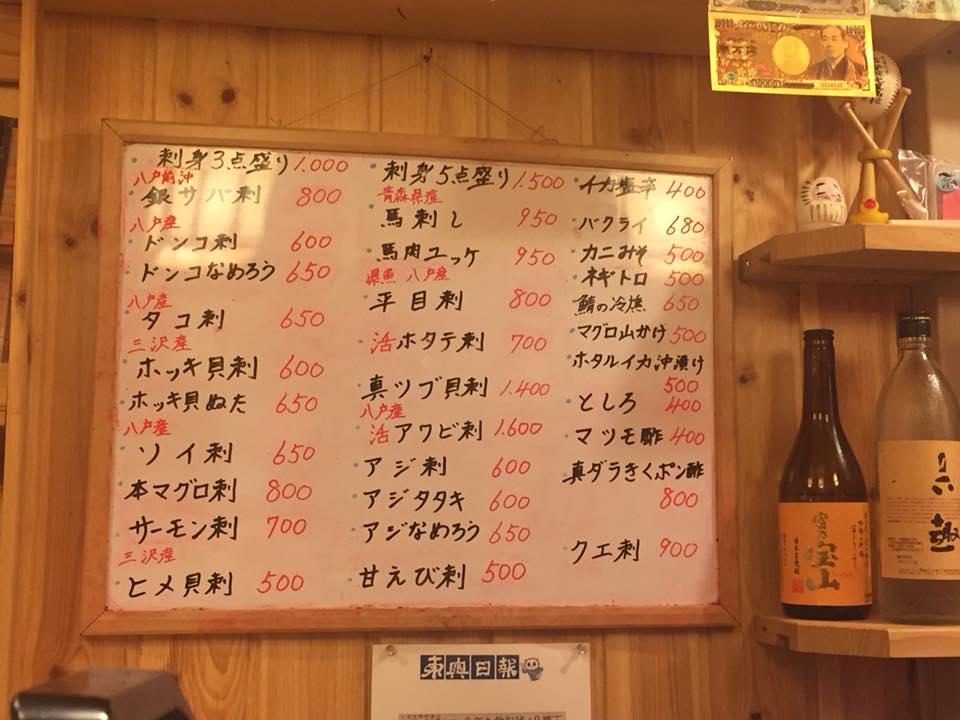 刺身3点盛り 1.000
八戸前沖
銀サバ刺 800
八戸産
ドンコ刺 600
ドンコなめろう 650
八戸産
タコ刺 650
三沢産
ホッキ貝刺 600
ホッキ貝ぬた 650
八戸産
ソイ刺 650
本マグロ刺 800
サーモン刺 700
三沢産
ヒメ貝刺 500
刺身5点盛り 1.500
青森県産
馬刺し 950
馬肉ユッケ 950
県魚 八戸産
平目刺 800
活ホタテ刺 700
真ツブ貝刺 1.400
八戸産
活アワビ刺 1.600
アジ刺 600
アジタタキ 600
アジなめろう 650
甘えび刺 500
イカ塩辛 400
バクライ 680
カニみそ 500
ネギトロ 500
鯖の冷燻 650
マグロ山かけ 500
ホタルイカ沖漬け
500
としろ 400
マツモ酢 400
真ダラきくポン酢
800
クエ刺 900
宝山
東奥日報